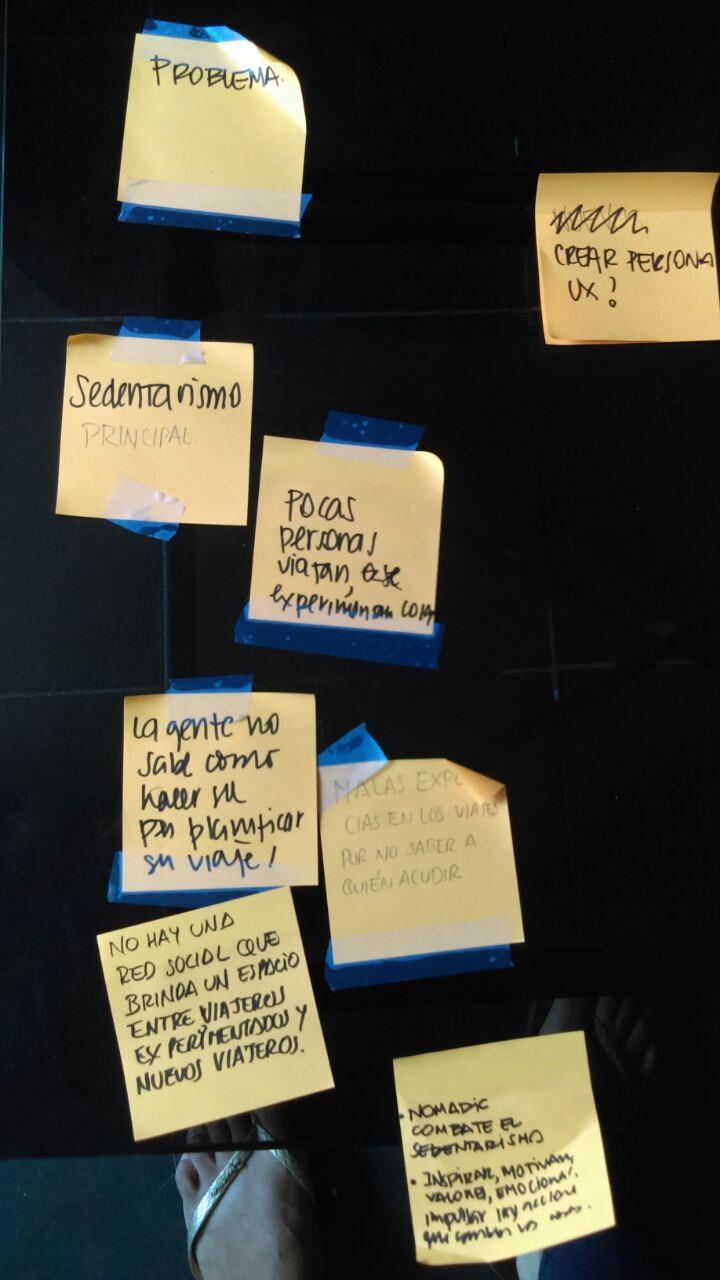 PROBLEMA.
CREAR PERSONA
UX?
Sedentarismo
PRINCIPAL.
POCAS
personas
viajan,
experimentan
La gente no
sabe como
hacer su
planificar
su viaje!
MALAS EXPE
CIAS EN LOS VIAJES
POR NO SABER A
QUIÉN ACUDIR
NO HAY UNA
RED SOCIAL QUE
BRINDA UN ESPACIO
ENTRE VIAJEROS
EXPERIMENTADOS Y
NUEVOS VIAJEROS.
• NOMADIC
COMBATE EL
SEDENTARISMO
• INSPIRAR, MOTIVAR,
VALORES, EMOCIONAL.
impulsar
que